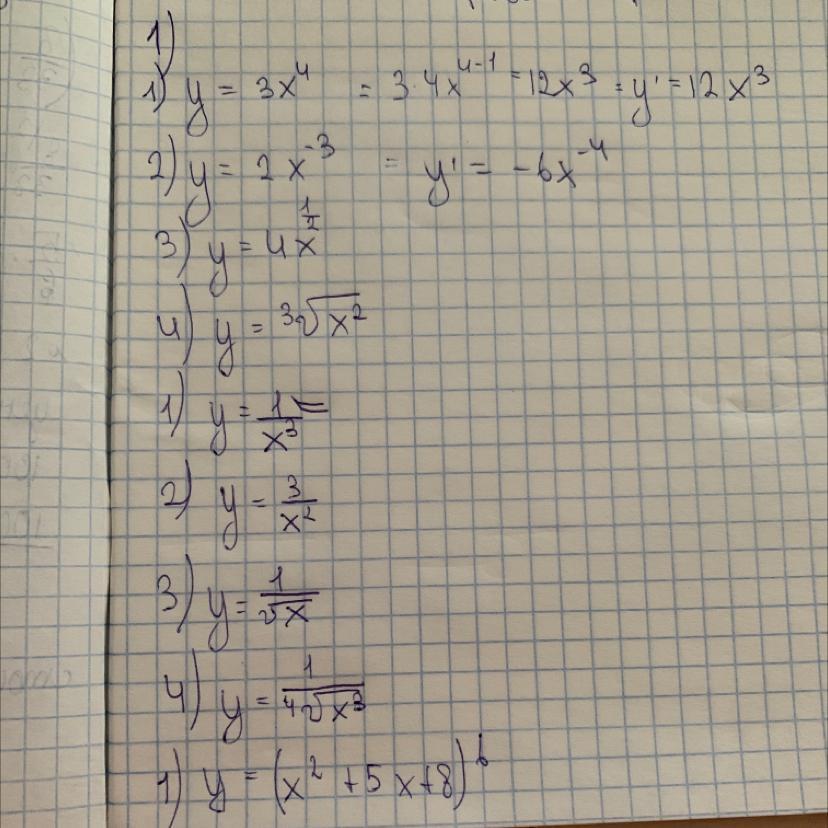 1)
1) y = 3x⁴ = 3·4x⁴⁻¹ = 12x³ = y' = 12x³
2) y = 2x⁻³ = y' = -6x⁻⁴
3) y = 4x^(1/2)
4) y = ³√x²
1) y = 1/x³ =
2) y = 3/x²
3) y = 1/√x
4) y = 1/⁴√x³
1) y = (x² + 5x + 8)⁶